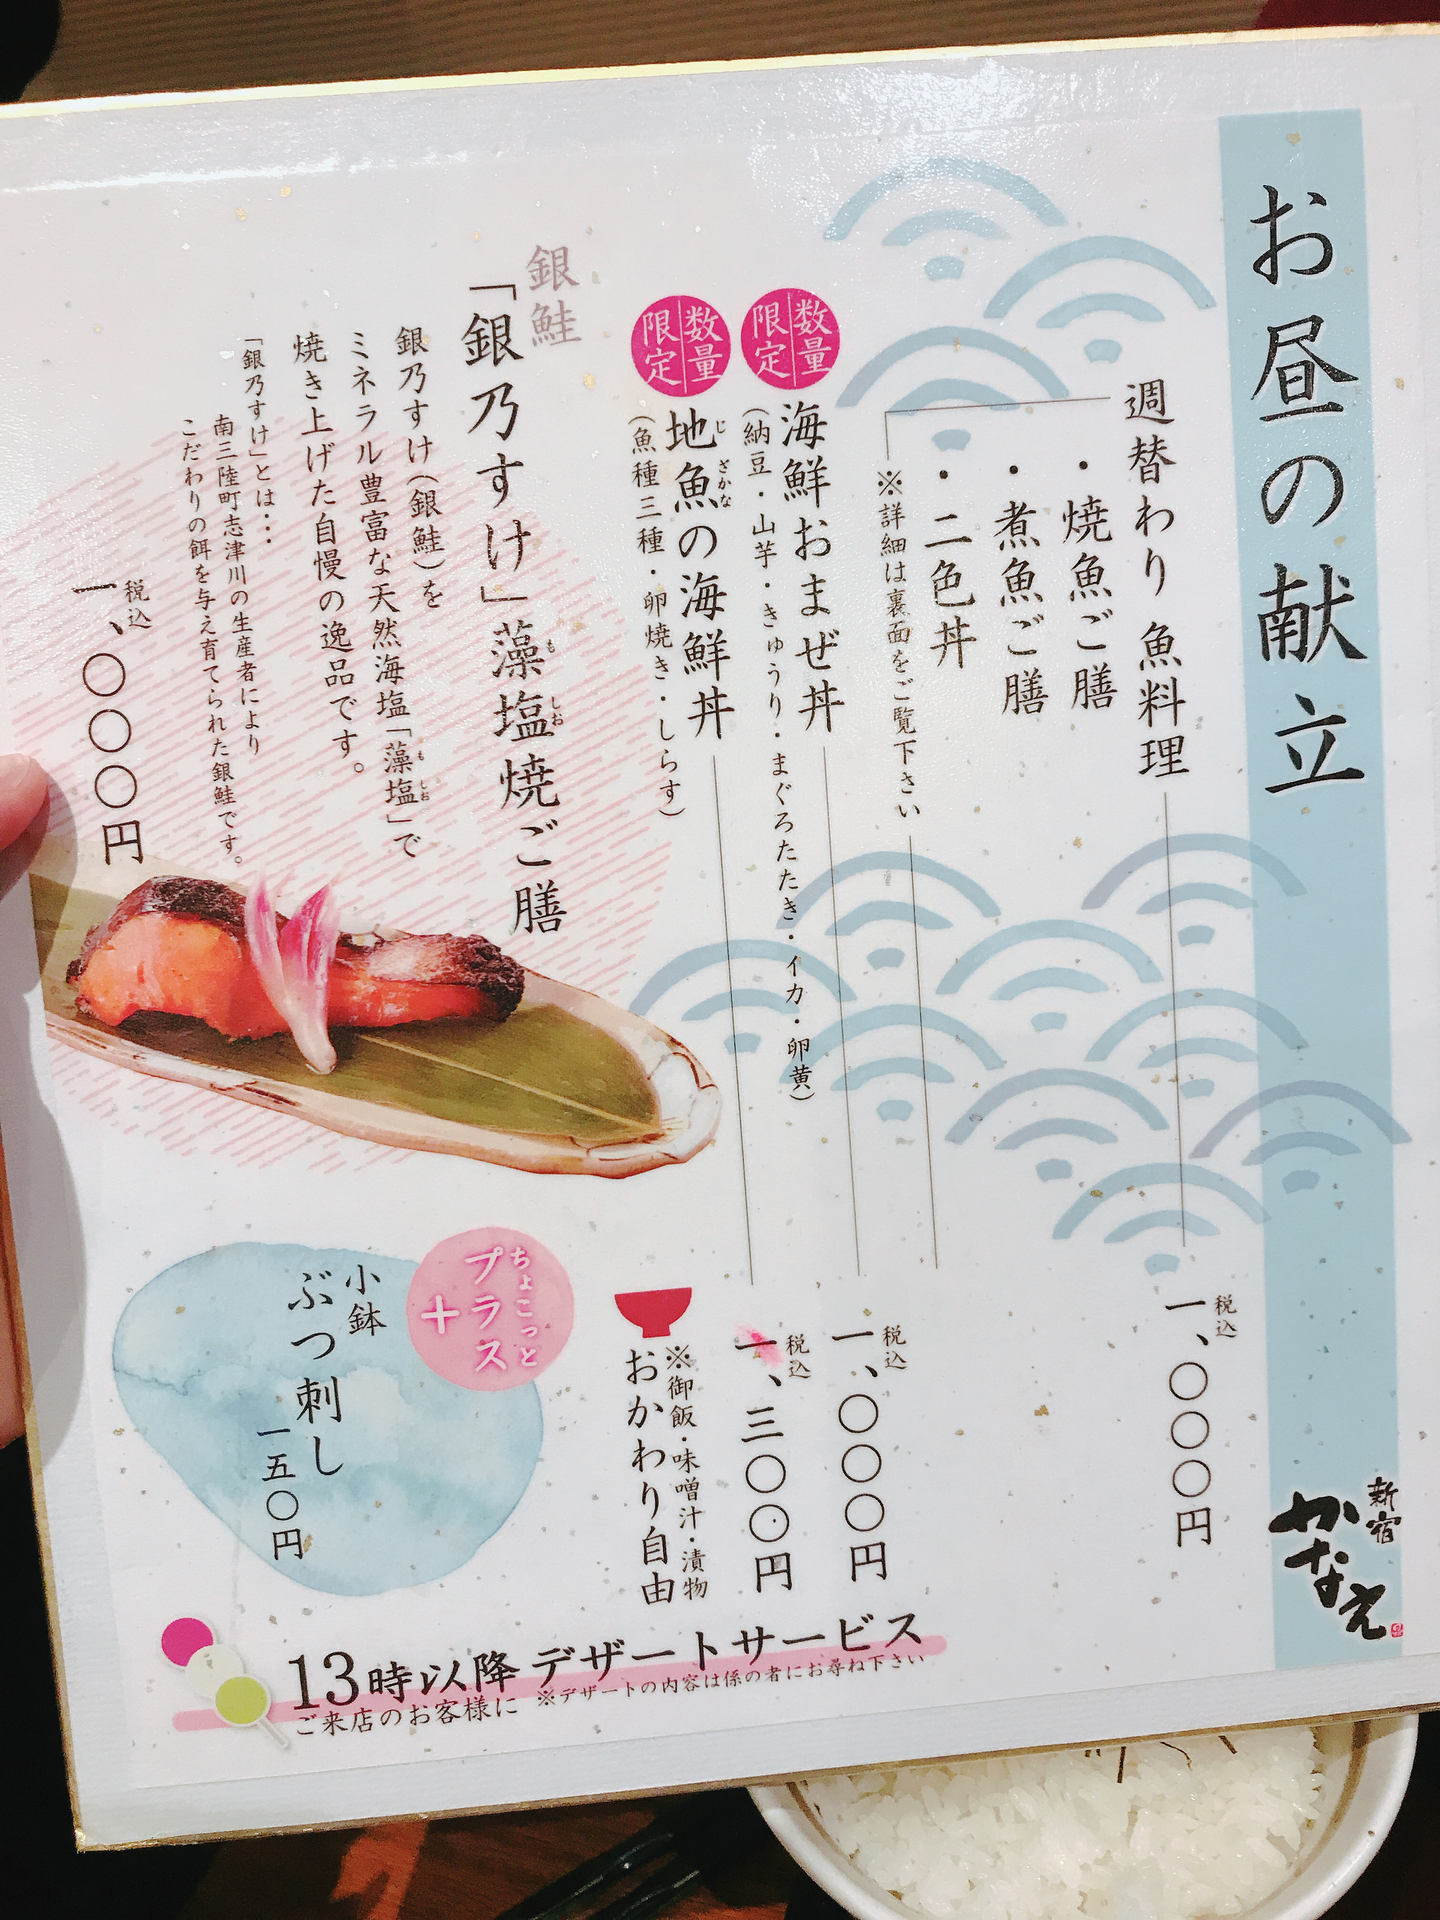 お昼の献立
新宿
かなえ
週替わり 魚料理
税込
一、〇〇〇円
・焼魚ご膳
・煮魚ご膳
・二色丼
※詳細は裏面をご覧下さい
数量
限定
海鮮おまぜ丼
(納豆・山芋・きゅうり・まぐろたたき・イカ・卵黄)
税込
一、〇〇〇円
数量
限定
じ ざかな
地魚の海鮮丼
(魚種三種・卵焼き・しらす)
税込
一、三〇〇円
※御飯・味噌汁・漬物
おかわり自由
銀鮭
「銀乃すけ」藻塩焼ご膳
も しお
銀乃すけ(銀鮭)を
ミネラル豊富な天然海塩「藻塩」で
も しお
焼き上げた自慢の逸品です。
「銀乃すけ」とは・・・
南三陸町志津川の生産者により
こだわりの餌を与え育てられた銀鮭です。
税込
一、〇〇〇円
ちょこっと
プラス
+
小鉢
ぶつ刺し
一五〇円
13時以降 デザートサービス
ご来店のお客様に ※デザートの内容は係の者にお尋ね下さい